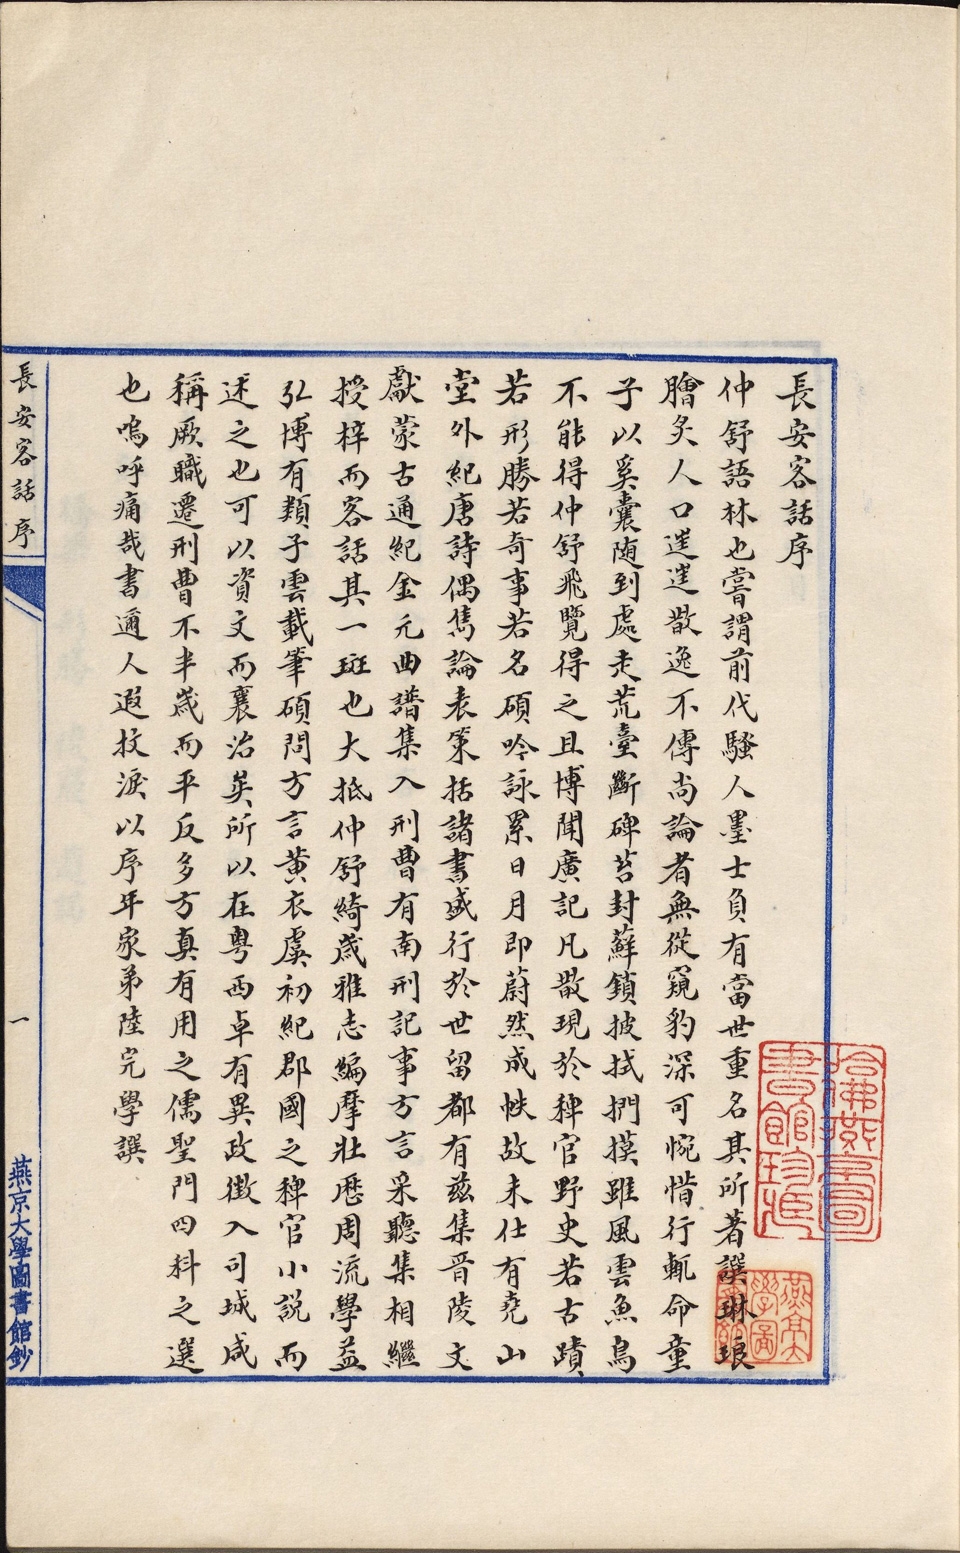 長安客話序
仲舒語林也嘗謂前代騷人墨士負有當世重名其所著譔琳琅
膾炙人口迋迋散逸不傳尚論者無從窺豹深可惋惜行輒命童
子以奚囊随到處走荒臺斷碑苔封蘚鎖披拭捫摸雖風雲魚鳥
不能得仲舒飛覽得之且博聞廣記凡散現於稗官野史若古蹟
若形勝若奇事若名碩吟詠累日月即蔚然成帙故未仕有堯山
堂外紀唐詩偶雋論表策括諸書盛行於世留都有茲集晉陵文
獻蒙古通紀金元曲譜集入刑曹有南刑記事方言采聽集相繼
授梓而客話其一斑也大抵仲舒綺歲雅志編摩壯歷周流學益
弘博有類子雲載筆碩問方言黄衣虞初紀郡國之稗官小説而
述之也可以資文而襄治矣所以在粤西卓有異政徵入司城咸
稱厥職遷刑曹不半歲而平反多方真有用之儒聖門四科之選
也嗚呼痛哉書邇人遐抆淚以序年家弟陸完學譔
長安客話 序
一
燕京大學圖書館鈔
哈佛燕京圖書館珍藏
燕京大學圖書館